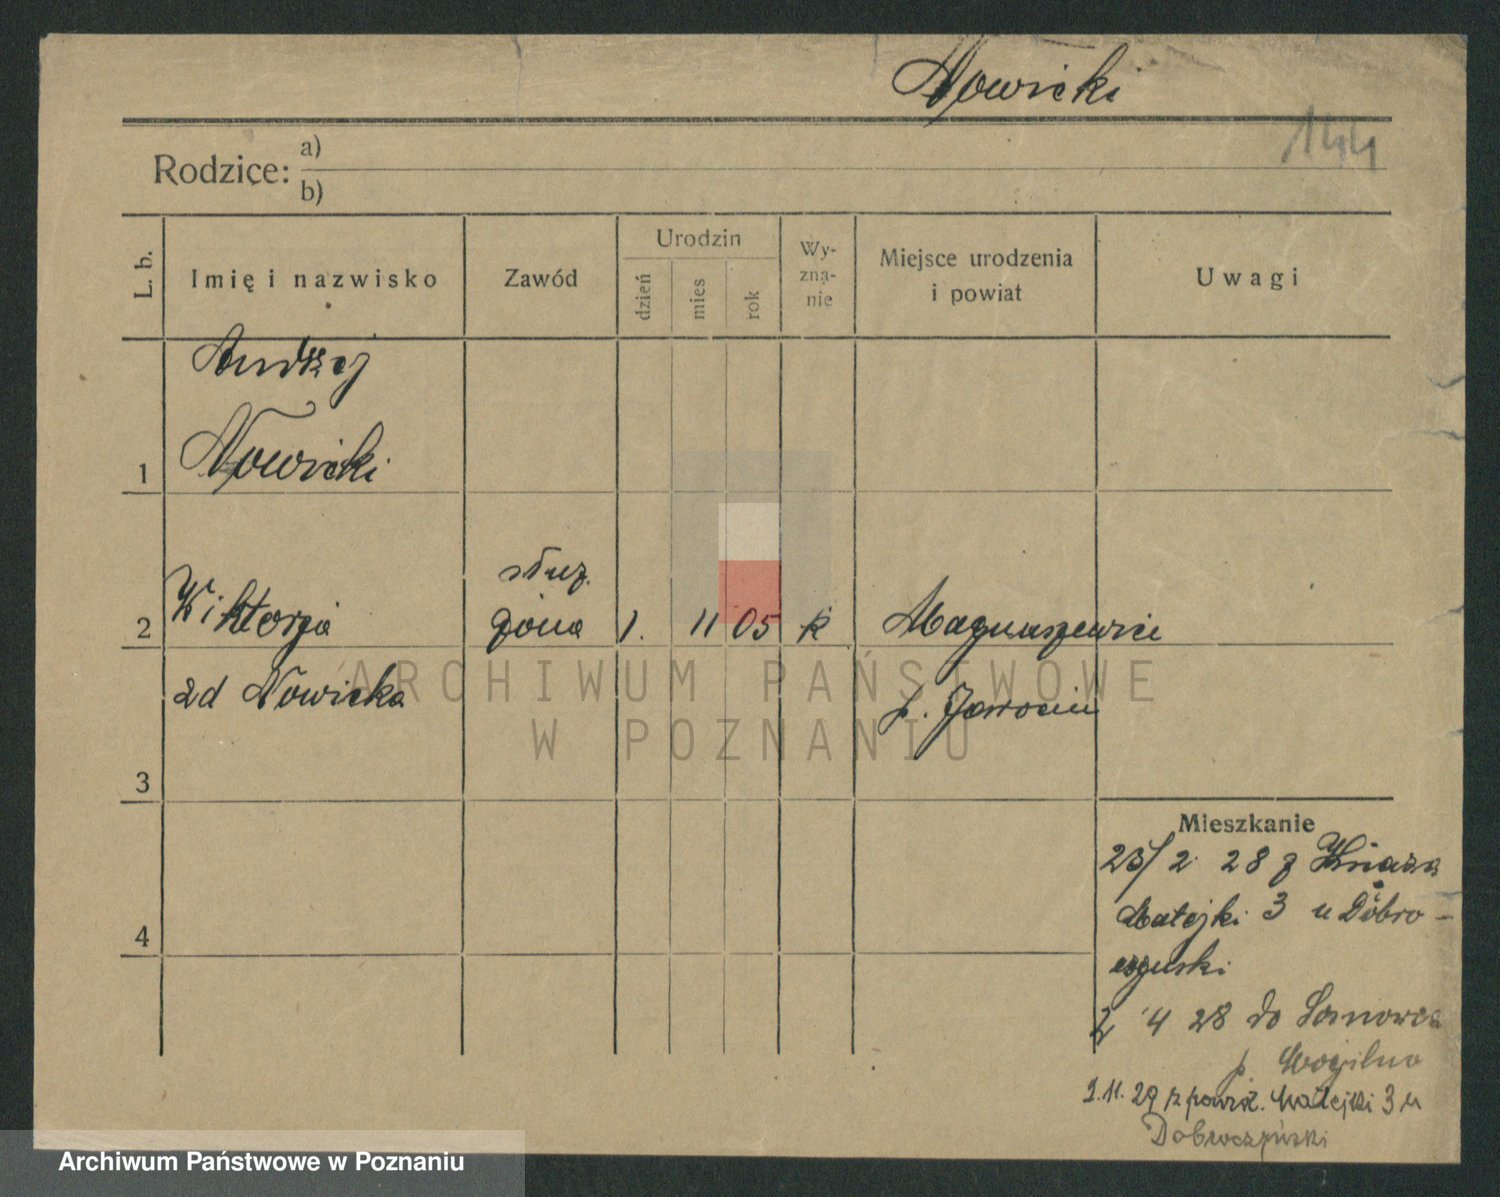 Nowicki
144
Rodzice:
a)
b)
L. b.
Imię i nazwisko
Zawód
Urodzin
dzień
mies
rok
Wy-
zna-
nie
Miejsce urodzenia
i powiat
Uwagi
Andrzej
1 Nowicki
służ.
2 Wiktorja żona 1. 11 05 k Magnuszewice
zd Nowicka p. Jarocin
3
4
Mieszkanie
25/2 28 z Książa
Matejki 3 u Dobro-
czyński
2 4 28 do
p. Mogilno
2.11.29 z powró. Matejki 3 u
Dobroczyński
ARCHIWUM PAŃSTWOWE
W POZNANIU
Archiwum Państwowe w Poznaniu